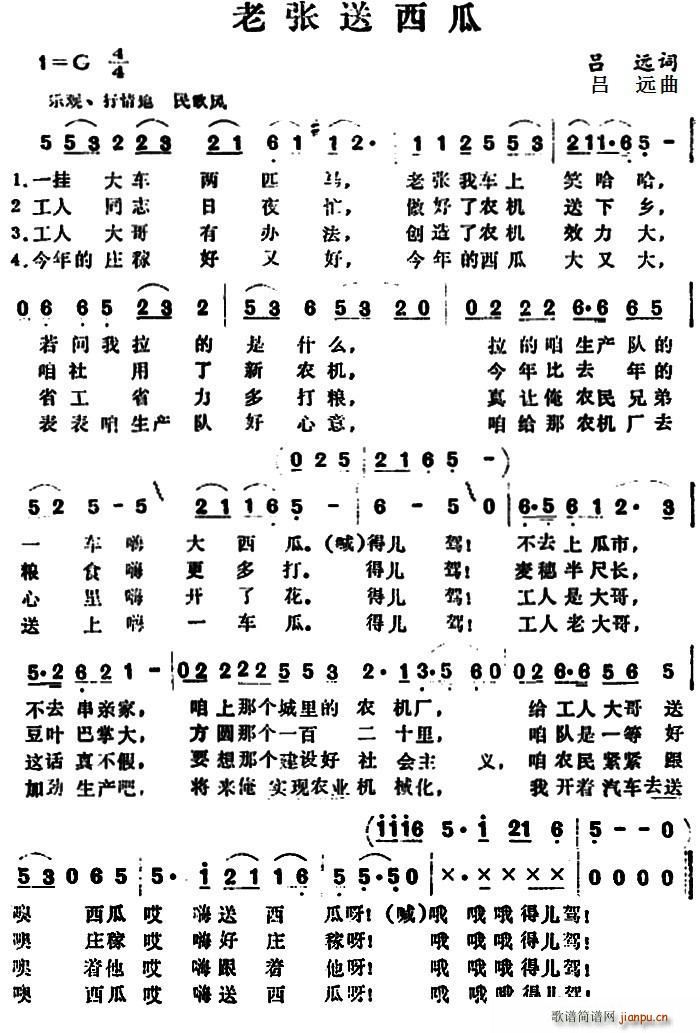 老张送西瓜
1=G 4/4
吕 远词
吕 远曲
乐观、抒情地 民歌风
5 53 2 23 21 6 1 12· 112 5 53 211·6 5-
1.一挂 大车 两匹马, 老张我车上 笑哈哈,
2 工人 同志 日夜忙, 做好了农机 送下乡,
3.工人 大哥 有办法, 创造了农机 效力大,
4.今年的庄稼 好又好, 今年的西瓜 大又大,
0 6 6 5 23 2 53 6 53 20 02 22 6·6 65
若问我拉的是什么, 拉的咱生产队的
咱社用了新农机, 今年比去年的
省工省力多打粮, 真让俺农民兄弟
表表咱生产队好心意, 咱给那农机厂去
(025 2165 -)
52 5-5 21 165 - 6 - 5 0 6·5 61 2·3
一车嗨大西瓜。(喊)得儿驾! 不去上瓜市,
粮食嗨更多打。得儿驾! 麦穗半尺长,
心里嗨开了花。得儿驾! 工人是大哥,
送上嗨一车瓜。得儿驾! 工人老大哥,
5·2 621 - 02 222 5 53 2·1 3·5 60 02 6·6 56 5
不去串亲家, 咱上那个城里的农机厂, 给工人大哥送
豆叶巴掌大, 方圆那个一百二十里, 咱队是一等好
这话真不假, 要想那个建设好社会主义, 咱农民紧紧跟
加劲生产吧, 将来俺实现农业机械化, 我开着汽车去送
(1116 5·1 21 6 5--0)
53 065 5·1 2116 5 5·50 ×·××× ××× 0000
噢 西瓜哎 嗨送西瓜呀!(喊)哦 哦哦得儿驾!
噢 庄稼哎 嗨好庄稼呀! 哦 哦哦得儿驾!
噢 着他哎 嗨跟着他呀! 哦 哦哦得儿驾!
噢 西瓜哎 嗨送西瓜呀! 哦 哦哦得儿驾!
歌谱简谱网
jianpu.cn